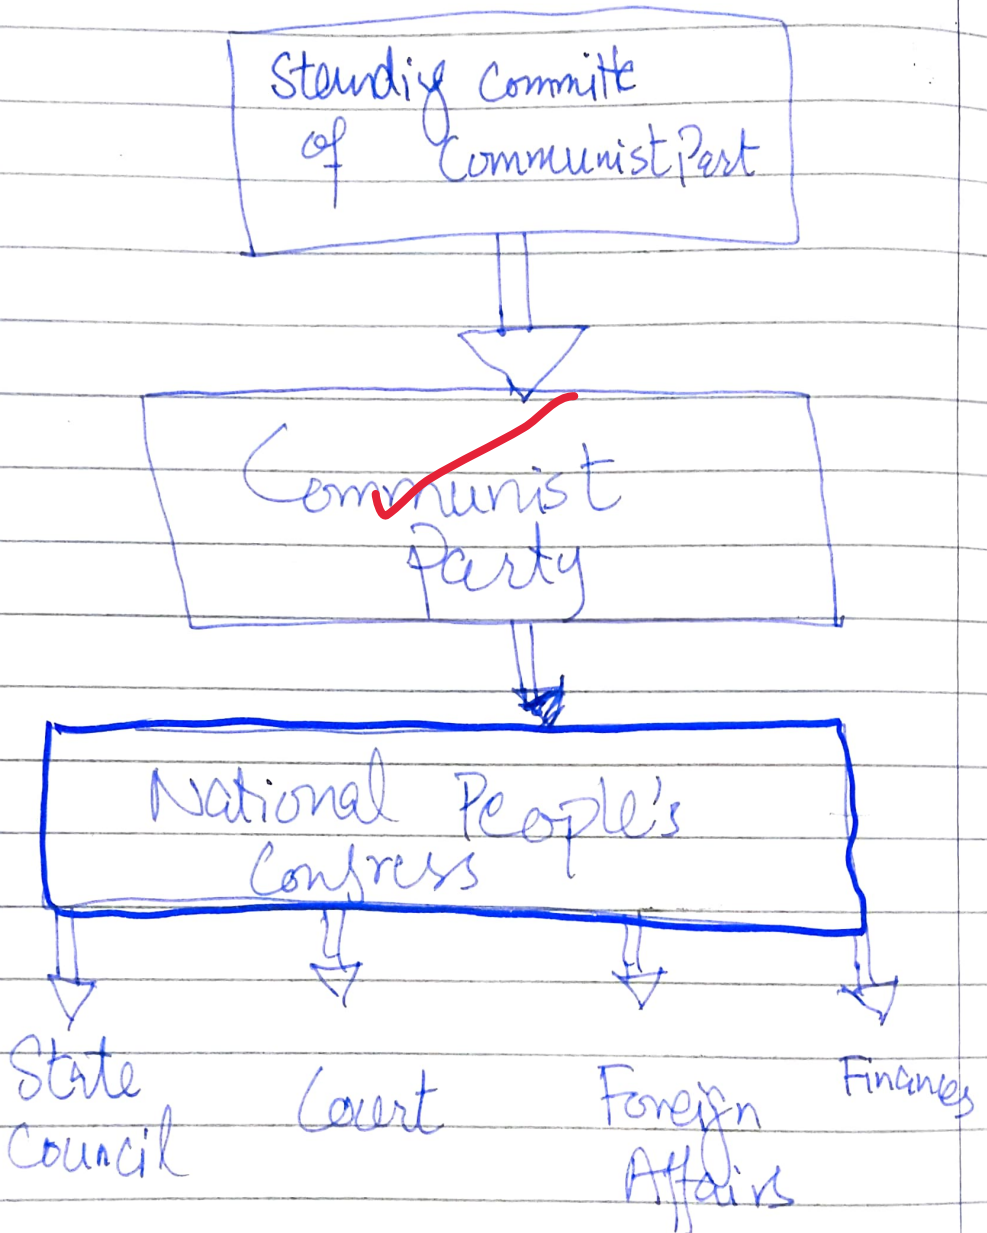 Standing Committe
of Communist Part
Communist
Party
National People's
Congress
State
Council
Court
Foreign
Affairs
Finances